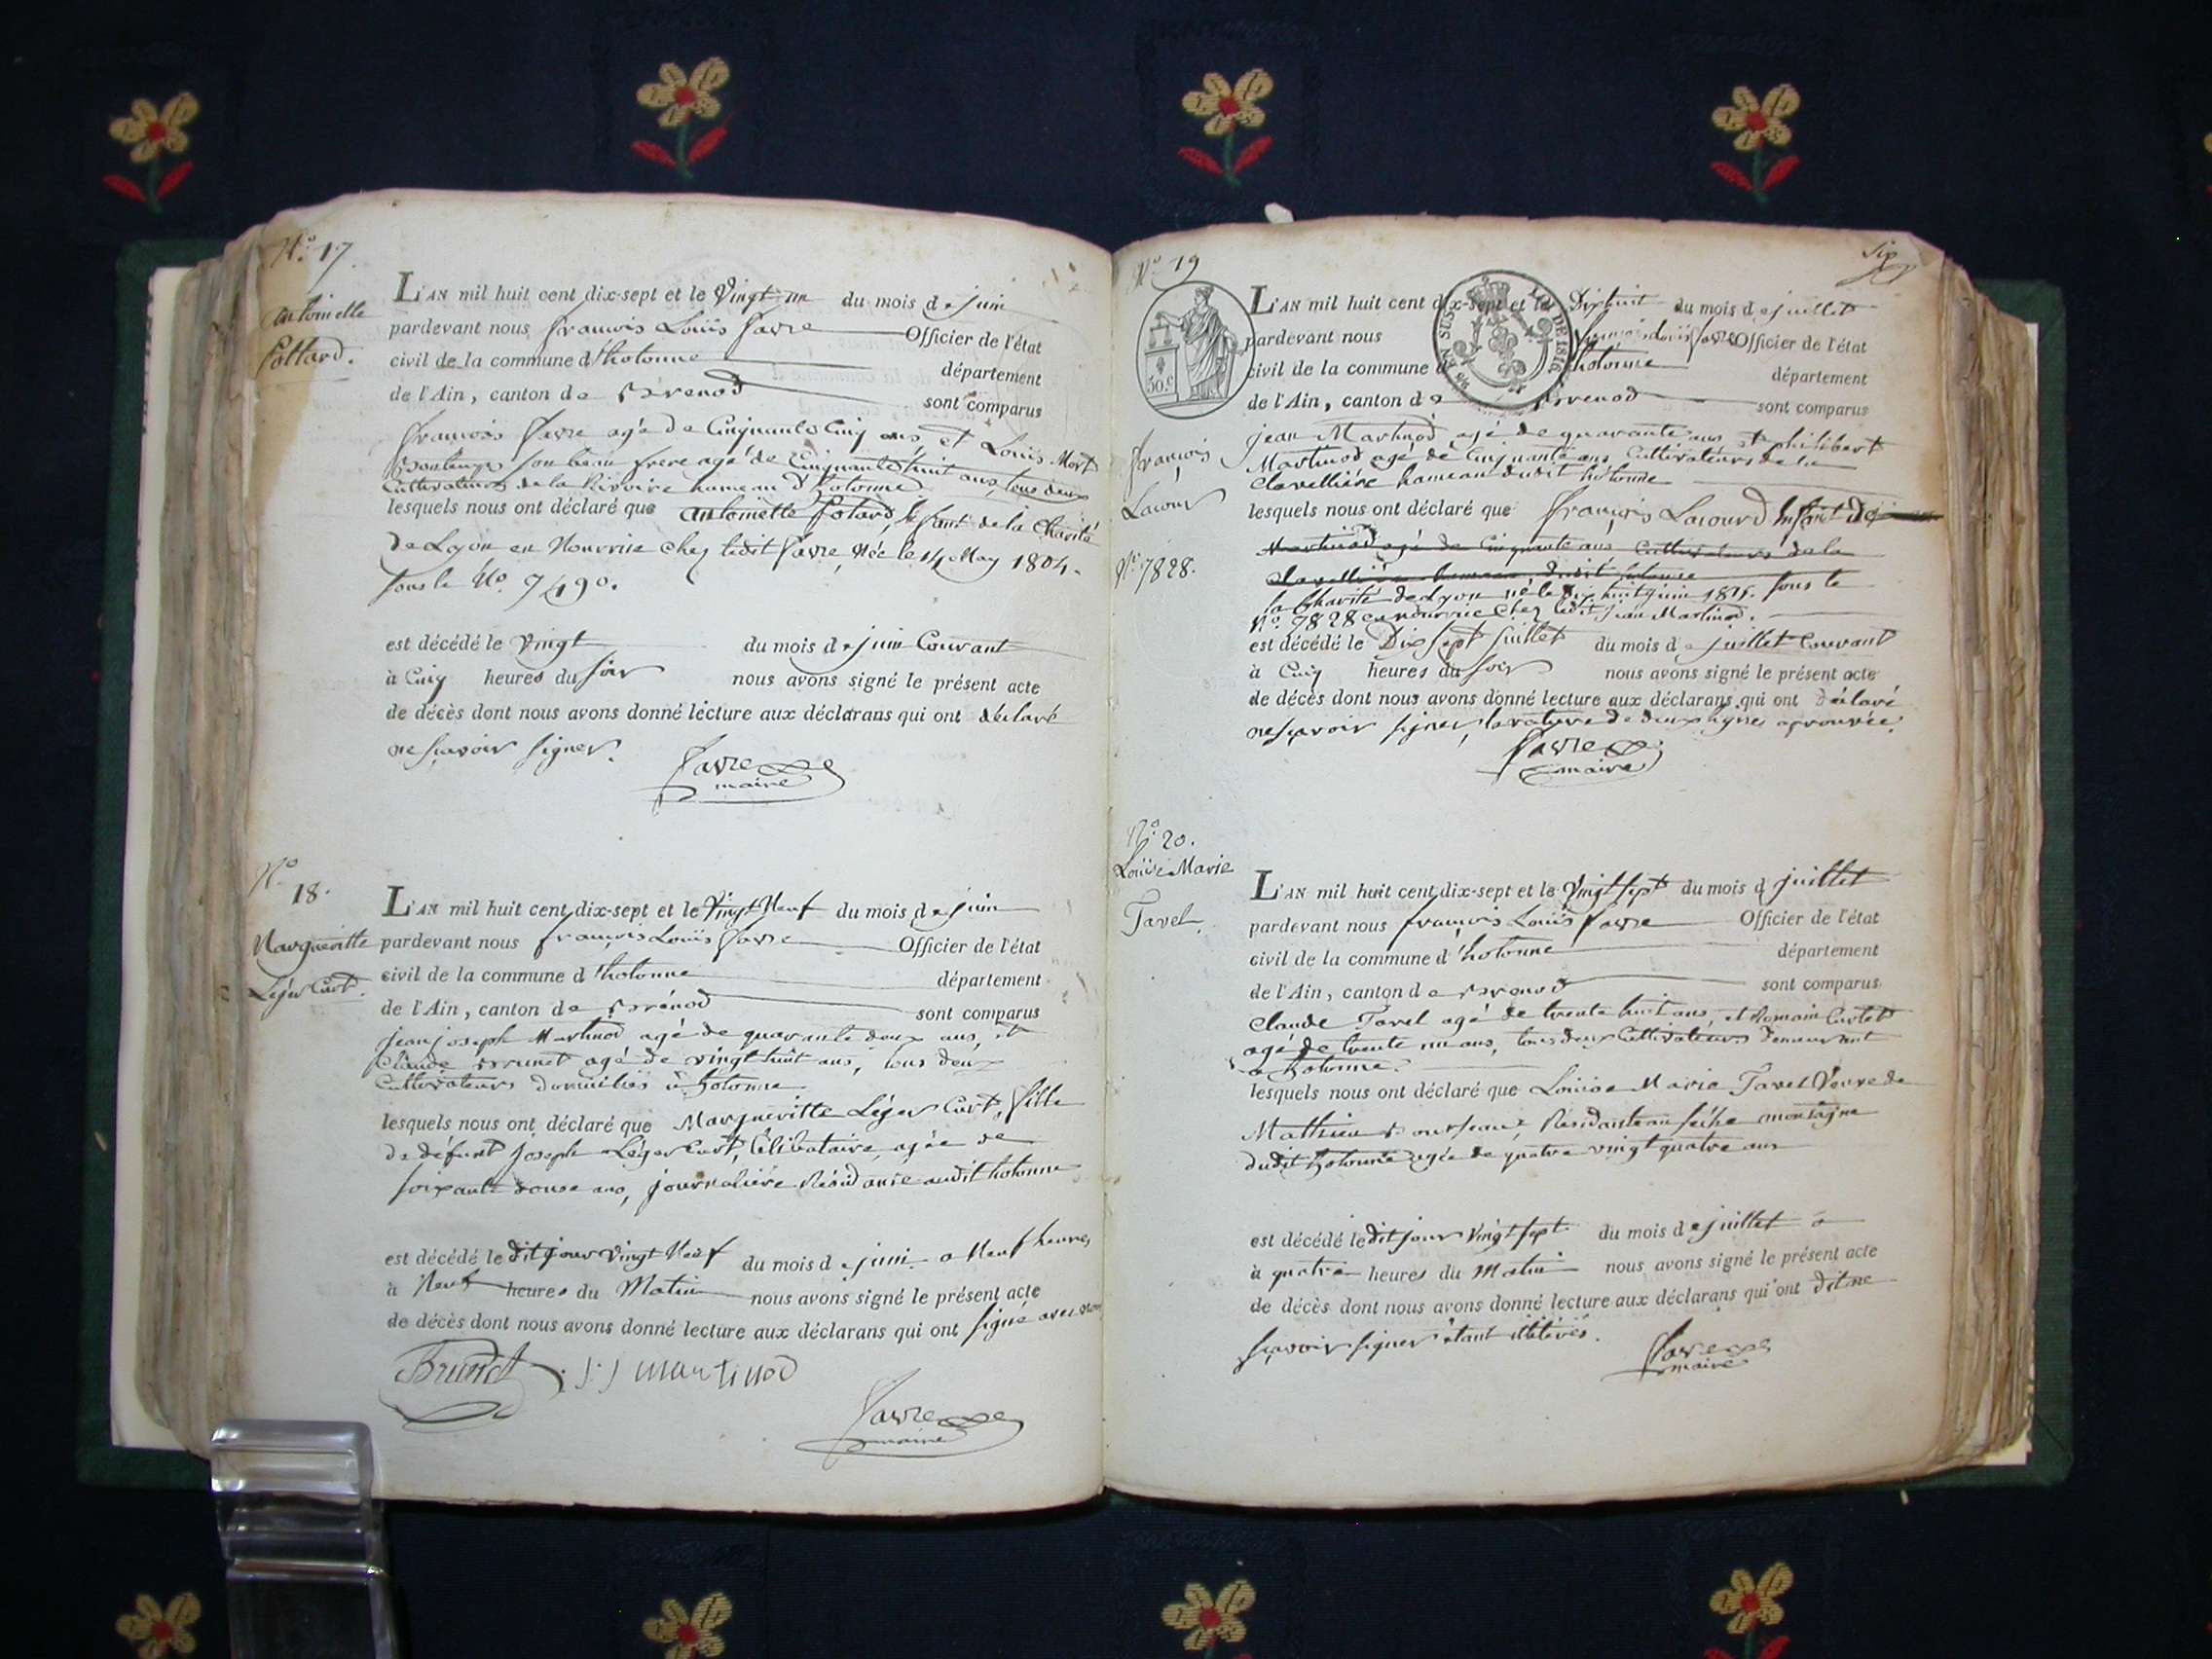 N.° 17.
Antoinette
Pottard.
L'AN mil huit cent dix-sept et le Vingt un du mois de juin
pardevant nous françois Louïs favre Officier de l'état
civil de la commune d'hotonne département
de l'Ain, canton de Brenod sont comparus
françois favre agé de Cinquante Cinq ans, et Louis Mort
son beau frere agé de Cinquante huit ans, tous deux
Cultivateurs de la Rivoire hameau d'hotonne
lesquels nous ont déclaré que antoinette Potard, Enfant de la Charité
de Lyon en Nourrice chez ledit favre, Née le 14 May 1804.
sous le N.o 7490.
est décédé le Vingt du mois de juin Courant
à Cinq heures du soir nous avons signé le présent acte
de décès dont nous avons donné lecture aux déclarans qui ont déclaré
ne sçavoir signer.
favre
maire
N.o
18.
Margueritte
Léger Curt.
L'AN mil huit cent dix-sept et le Vingt Neuf du mois de juin
pardevant nous françois Louïs favre Officier de l'état
civil de la commune d'hotonne département
de l'Ain, canton de Brénod sont comparus
jean joseph Martinod agé de quarante deux ans, et
Claude Brunet agé de vingt huit ans, tous deux
Cultivateurs domiciliés à hotonne
lesquels nous ont déclaré que Margueritte Léger Curt, fille
de défunt joseph Léger Curt, Célibataire, agée de
soixante douse ans, journalière Résidante audit hotonne
est décédé le dit jour vingt Neuf du mois de juin a Neuf heures
à Neuf heures du Matin nous avons signé le présent acte
de décès dont nous avons donné lecture aux déclarans qui ont signé avec nous
Brunet J:J martinod
favre
maire
Six
N.o 19
françois
Lacour
N.o 7828.
50 c
EN SUS
LOI DE 1816
L'AN mil huit cent dix-sept et le Dixhuit du mois de juillet
pardevant nous françois Louïs favre Officier de l'état
civil de la commune d'hotonne département
de l'Ain, canton de Brenod sont comparus
jean Martinod agé de quarante ans, et philibert
Martinod agé de Cinquante ans Cultivateurs de la
Clavellière hameau dudit hotonne
lesquels nous ont déclaré que françois Lacour Enfant de
Martinod agé de Cinquante ans Cultivateurs de la
Clavellière hameau dudit hotonne
la Charité de Lyon né le Dix huit juin 1815. sous le
N.o 7828 en nourrice chez ledit jean Martinod.
est décédé le Dix sept juillet du mois de juillet Courant
à Cinq heures du soir nous avons signé le présent acte
de décès dont nous avons donné lecture aux déclarans qui ont déclaré
ne sçavoir signer, la rature de deux lignes aprouvée.
favre
maire
N.o 20.
Louïse Marie
Tavel.
L'AN mil huit cent dix-sept et le Vingt sept du mois d juillet
pardevant nous françois Louïs favre Officier de l'état
civil de la commune d'hotonne département
de l'Ain, canton de Brenod sont comparus
Claude Tavel agé de trente huit ans, et Romain Curtet
agé de trente un ans, tous deux Cultivateurs demeurant
a hotonne.
lesquels nous ont déclaré que Louise Marie Tavel Veuve de
Mathieu Résidante au sèche montagne
dudit hotonne agée de quatre vingt quatre ans
est décédé le dit jour Vingt sept du mois de juillet a
à quatre heures du Matin nous avons signé le présent acte
de décès dont nous avons donné lecture aux déclarans qui ont dit ne
sçavoir signer étant illitérés.
favre
maire